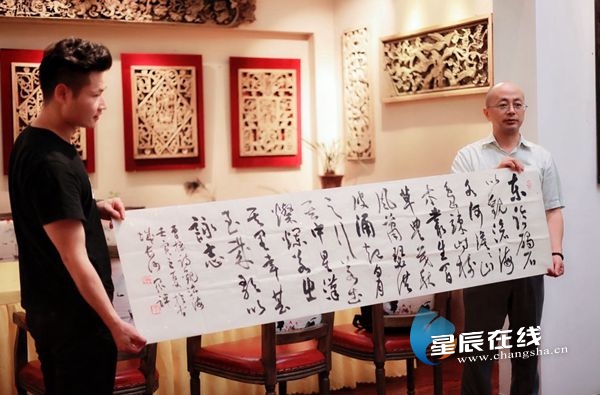 東臨碣石
以觀滄海
水何澹澹山
島竦峙樹
木叢生百
草豐茂秋
風蕭瑟洪
波涌起日月
之行若出
其中星漢
燦爛若出
其里幸甚
至哉歌以
詠志
星辰在线
www.changsha.cn